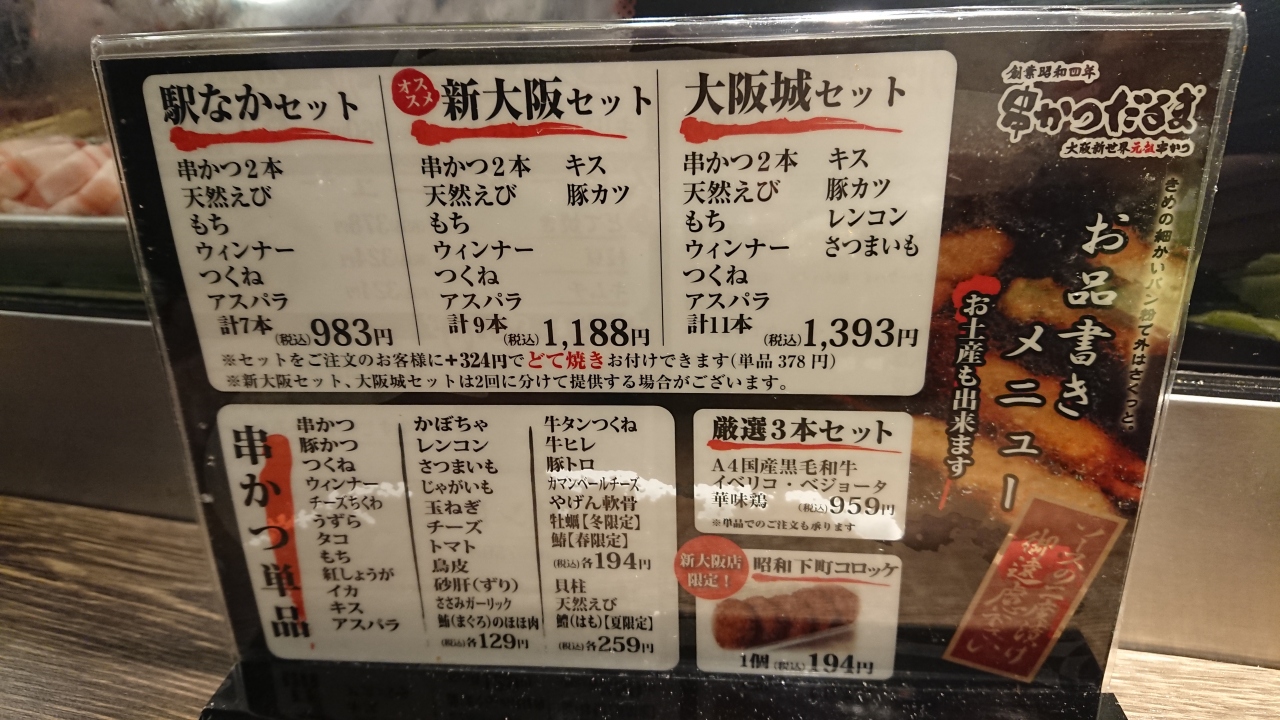 駅なかセット
串かつ2本
天然えび
もち
ウィンナー
つくね
アスパラ
計7本
(税込)983円
オススメ
新大阪セット
串かつ2本 キス
天然えび 豚カツ
もち
ウィンナー
つくね
アスパラ
計9本
(税込)1,188円
大阪城セット
串かつ2本 キス
天然えび 豚カツ
もち レンコン
ウィンナー さつまいも
つくね
アスパラ
計11本
(税込)1,393円
※セットをご注文のお客様に+324円でどて焼きお付けできます(単品378円)
※新大阪セット、大阪城セットは2回に分けて提供する場合がございます。
創業昭和四年
串かつだるま
大阪新世界元祖串かつ
きめの細かいパン粉で外はさくっと。
お品書き
メニュー
お土産も出来ます
ソースの二度漬け
御遠慮下さい
串かつ単品
串かつ
豚かつ
つくね
ウィンナー
チーズちくわ
うずら
タコ
もち
紅しょうが
イカ
キス
アスパラ
かぼちゃ
レンコン
さつまいも
じゃがいも
玉ねぎ
チーズ
トマト
鳥皮
砂肝(ずり)
ささみガーリック
鮪(まぐろ)のほほ肉
(税込)各129円
牛タンつくね
牛ヒレ
豚トロ
カマンベールチーズ
やげん軟骨
牡蠣【冬限定】
鰆【春限定】
(税込)各194円
貝柱
天然えび
鱧(はも)【夏限定】
(税込)各259円
厳選3本セット
A4国産黒毛和牛
イベリコ・ベジョータ
華味鶏 (税込)959円
※単品でのご注文も承ります
新大阪店
限定!
昭和下町コロッケ
1個(税込)194円